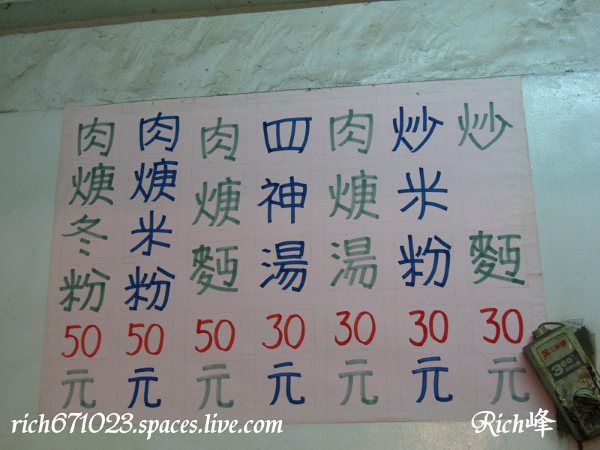 炒麵30元
炒米粉30元
肉焿湯30元
四神湯30元
肉焿麵50元
肉焿米粉50元
肉焿冬粉50元
rich671023.spaces.live.com
Rich峰